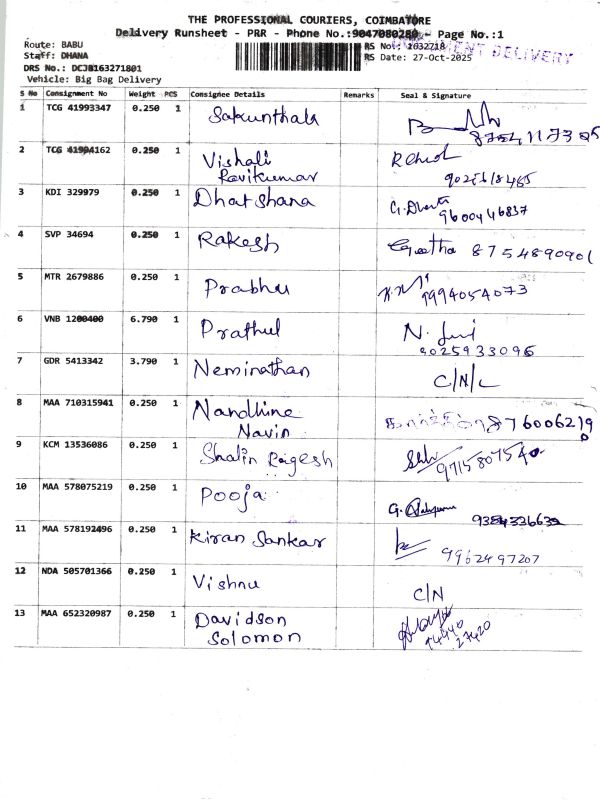 THE PROFESSIONAL COURIERS, COIMBATORE
Delivery Runsheet - PRR - Phone No.:9047080280 - Page No.:1
Route: BABU
Staff: DHANA
DRS No.: DCJB163271801
Vehicle: Big Bag Delivery
RS No.: 1632718
RS Date: 27-Oct-2025
DELIVERY
S No Consignment No Weight PCS Consignee Details Remarks Seal & Signature
1 TCG 41993347 0.250 1 Sakunthala
2 TCG 41904162 0.250 1 Vishali Ravikumar 9025618485
3 KDI 329979 0.250 1 Dharshana 9600446837
4 SVP 34694 0.250 1 Rakesh Geetha 8754890901
5 MTR 2679886 0.250 1 Prabhu 9994054073
6 VNB 1200400 6.790 1 Prathul 9025933096
7 GDR 5413342 3.790 1 Neminathan C/N/L
8 MAA 710315941 0.250 1 Nandhine Navin 8760062190
9 KCM 13536086 0.250 1 Shalin Ragesh 9715807540
10 MAA 578075219 0.250 1 Pooja 9384336632
11 MAA 578192496 0.250 1 Kiran Sankar 9962497207
12 NDA 505701366 0.250 1 Vishnu C/N
13 MAA 652320987 0.250 1 Davidson Solomon 94440 27420